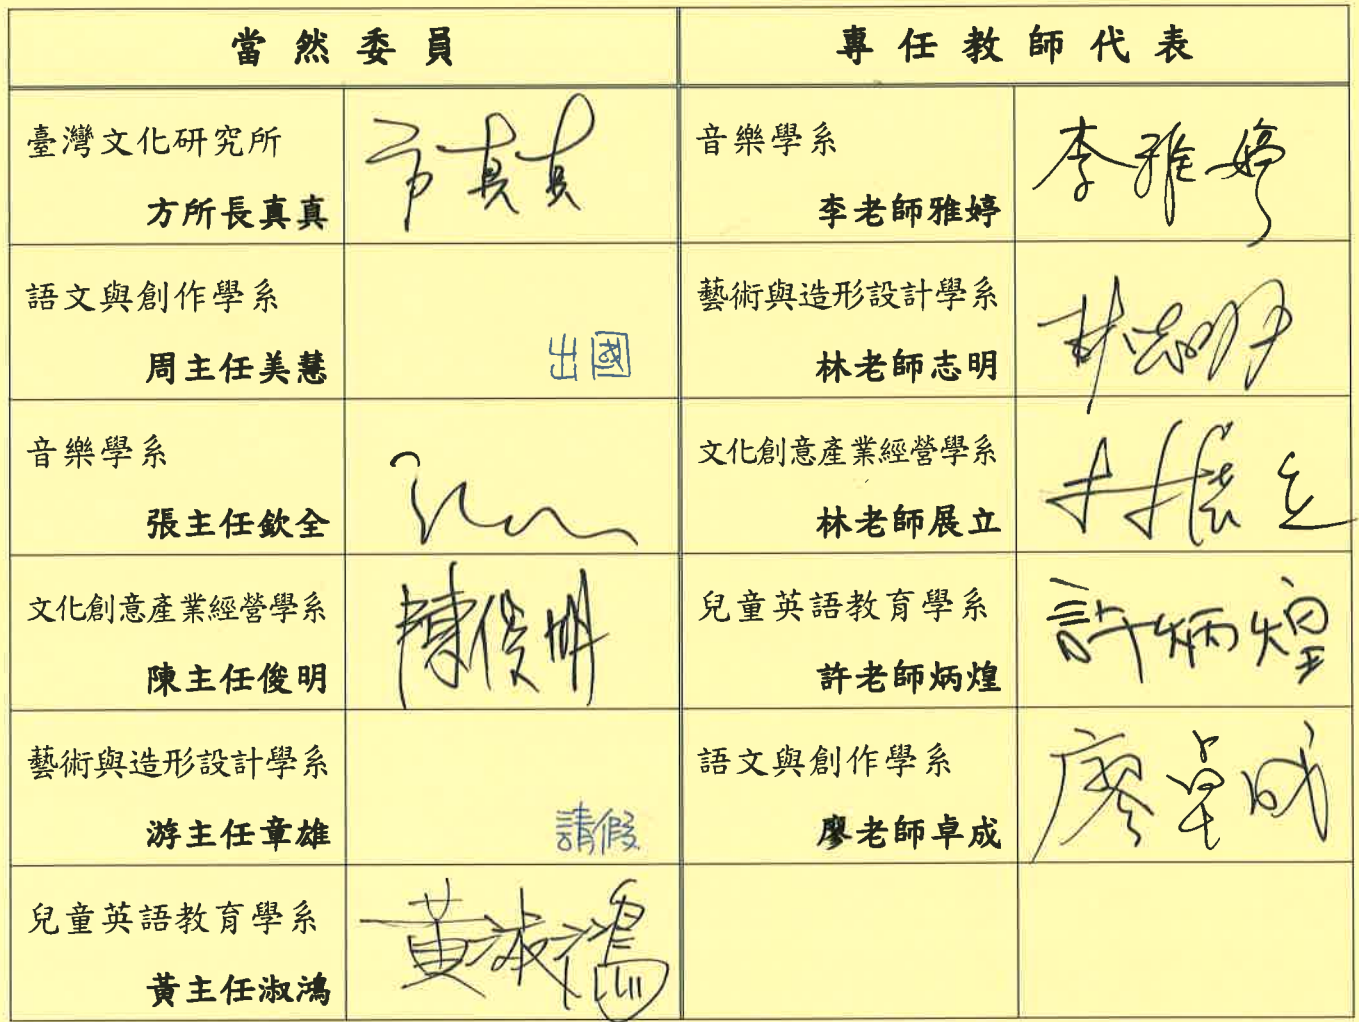 當然委員
專任教師代表
臺灣文化研究所
方所長真真
方真真
音樂學系
李老師雅婷
李雅婷
語文與創作學系
周主任美慧
出國
藝術與造形設計學系
林老師志明
林志明
音樂學系
張主任欽全
文化創意產業經營學系
林老師展立
林展立
文化創意產業經營學系
陳主任俊明
陳俊明
兒童英語教育學系
許老師炳煌
許炳煌
藝術與造形設計學系
游主任章雄
請假
語文與創作學系
廖老師卓成
廖卓成
兒童英語教育學系
黃主任淑鴻
黃淑鴻